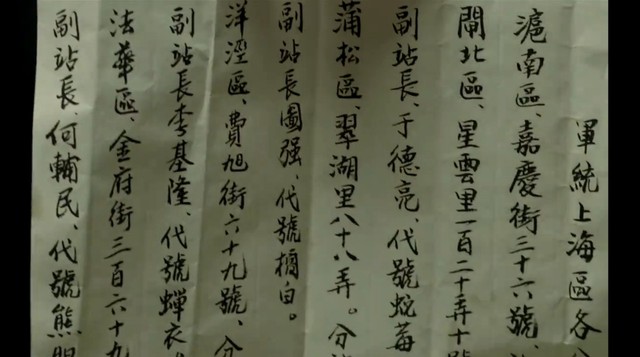 軍統上海區各分
滬南區、嘉慶街三十六號、
閘北區、星雲里一百二十弄十號
副站長、于德亮、代號蛇莓
蒲松區、翠湖里八十八弄。分
副站長圖强、代號積白。
洋涇區、費旭街六十九號、分
副站長李基隆、代號蟬衣。
法華區、金府街三百六十九
副站長、何輔民、代號熊胆